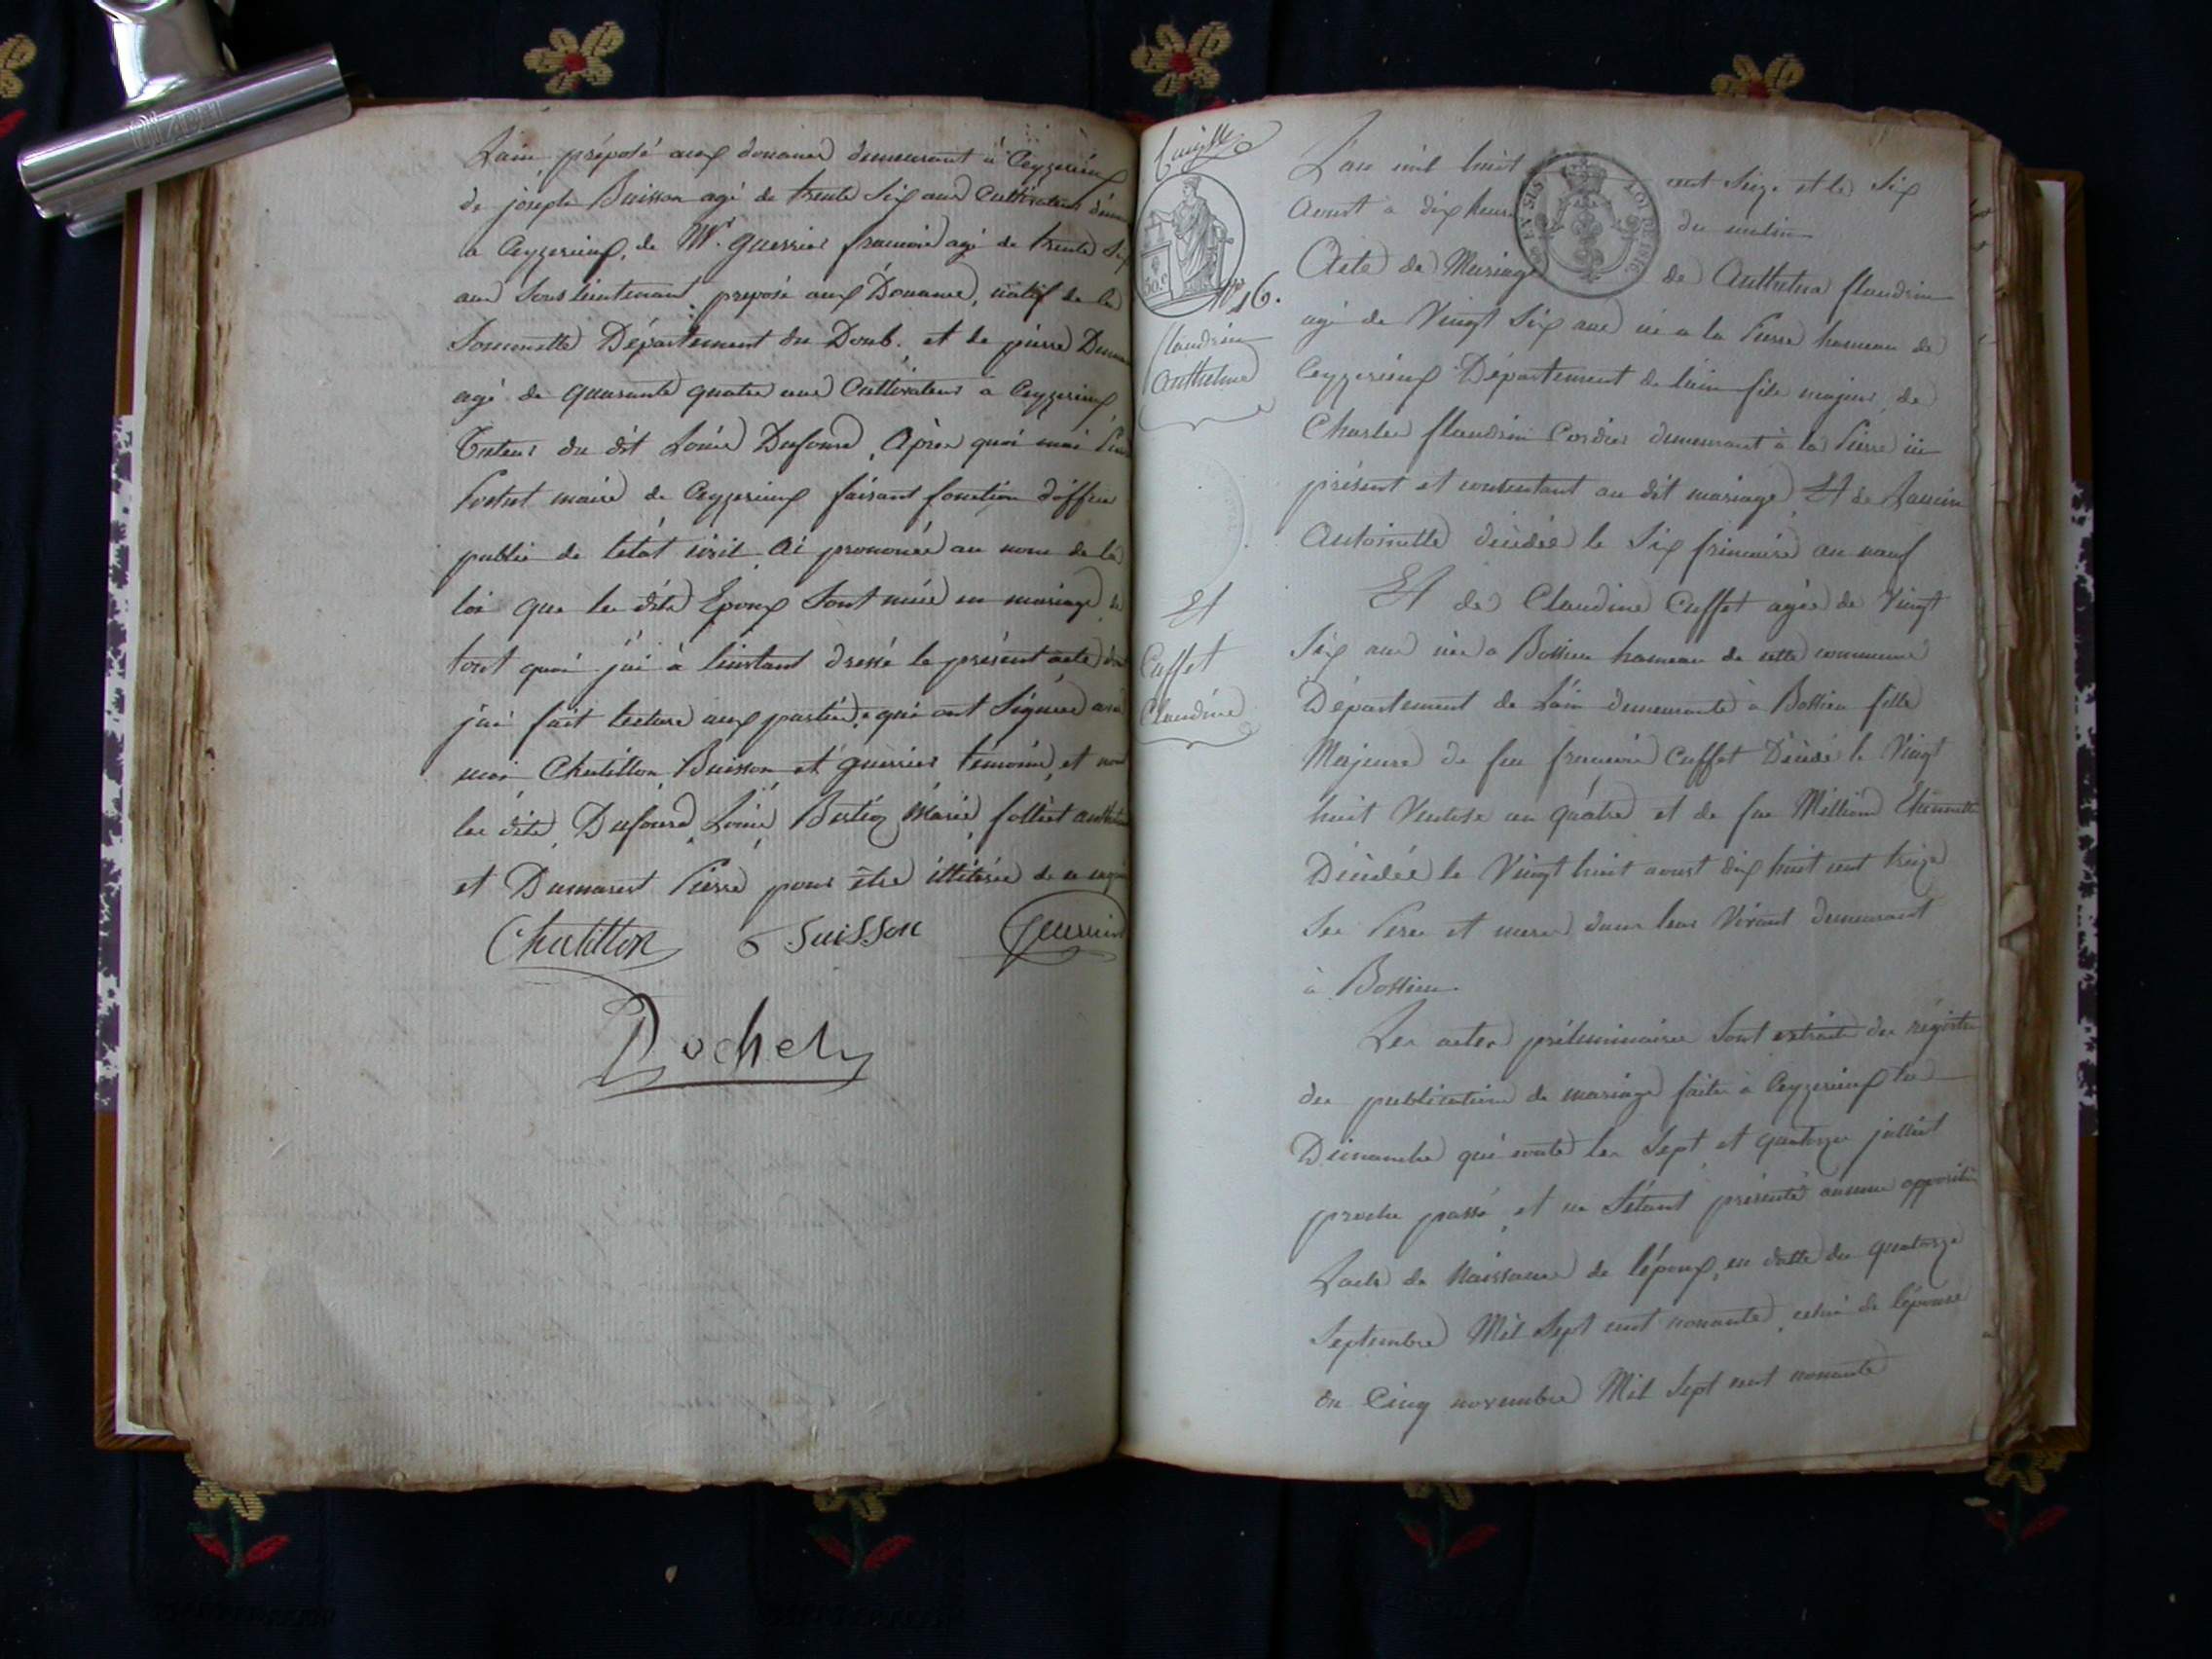 Lain préposé aux douanes demeurant à Ceyzerieux
de joseph Buisson agé de trente Six ans Cultivateur
a Ceyzerieux, de Mr. Guerrier francois agé de trente Six
ans Sous lieutenant préposé aux Douanes, natif de la
Département du Doub. et de pierre
agé de quarante quatre ans Cultivateur a Ceyzerieux
Tuteur du dit Louis Dufour. Après quoi moi
maire de Ceyzerieux faisant fonction
public de létat civil Ai prononcé au nom de la
loi que les dits Epoux Sont unis en mariage, de
tout quoi jai à linstant dressé le présent acte
jai fait lecture aux parties, qui ont Signées avec
moi Chatillon, Buisson et guerrier temoins, et non
les dits, Dufour Louis, Marie, folliet
et Dumarest Pierre pour être illitérés de ce
Chatillon Buisson Guerrier
Rochet
L'an mil huit cent Seize et le Six
Aoust à dix heures du matin
Acte de Mariage de Anthelme flandrin
agé de Vingt Six ans né a la Pierre hameau de
Ceyzerieux Département de lain fils majeur de
Charles flandrin Cordier demeurant à la Pierre ici
présent et consentant au dit mariage, Et de
Antoinette décédée le Six frimaire an neuf
Et de Claudine Cuffet agée de Vingt
Six ans née a Bossieu hameau de cette commune
Département de Lain demeurante à Bossieu fille
Majeure de feu francois Cuffet Décédé le Vingt
huit Ventose an quatre et de feue Etiennette
Décédée le Vingt huit aoust dix huit cent treize
Ses Pere et mere dans leur Vivant demeurant
à Bossieu.
Les actes préliminaires Sont extraits du régistre
des publications de mariage faites à Ceyzerieux les
Dimanches qui sont les Sept et quatorze juillet
proche passé, et ne S'étant présenté aucune opposition
Lacte de Naissance de lépoux, en datte du quatorze
Septembre Mil Sept cent nonante, celui de lépouse
du Cinq novembre Mil Sept cent nonante
No 16.
flandrin
Anthelme
Et
Cuffet
Claudine